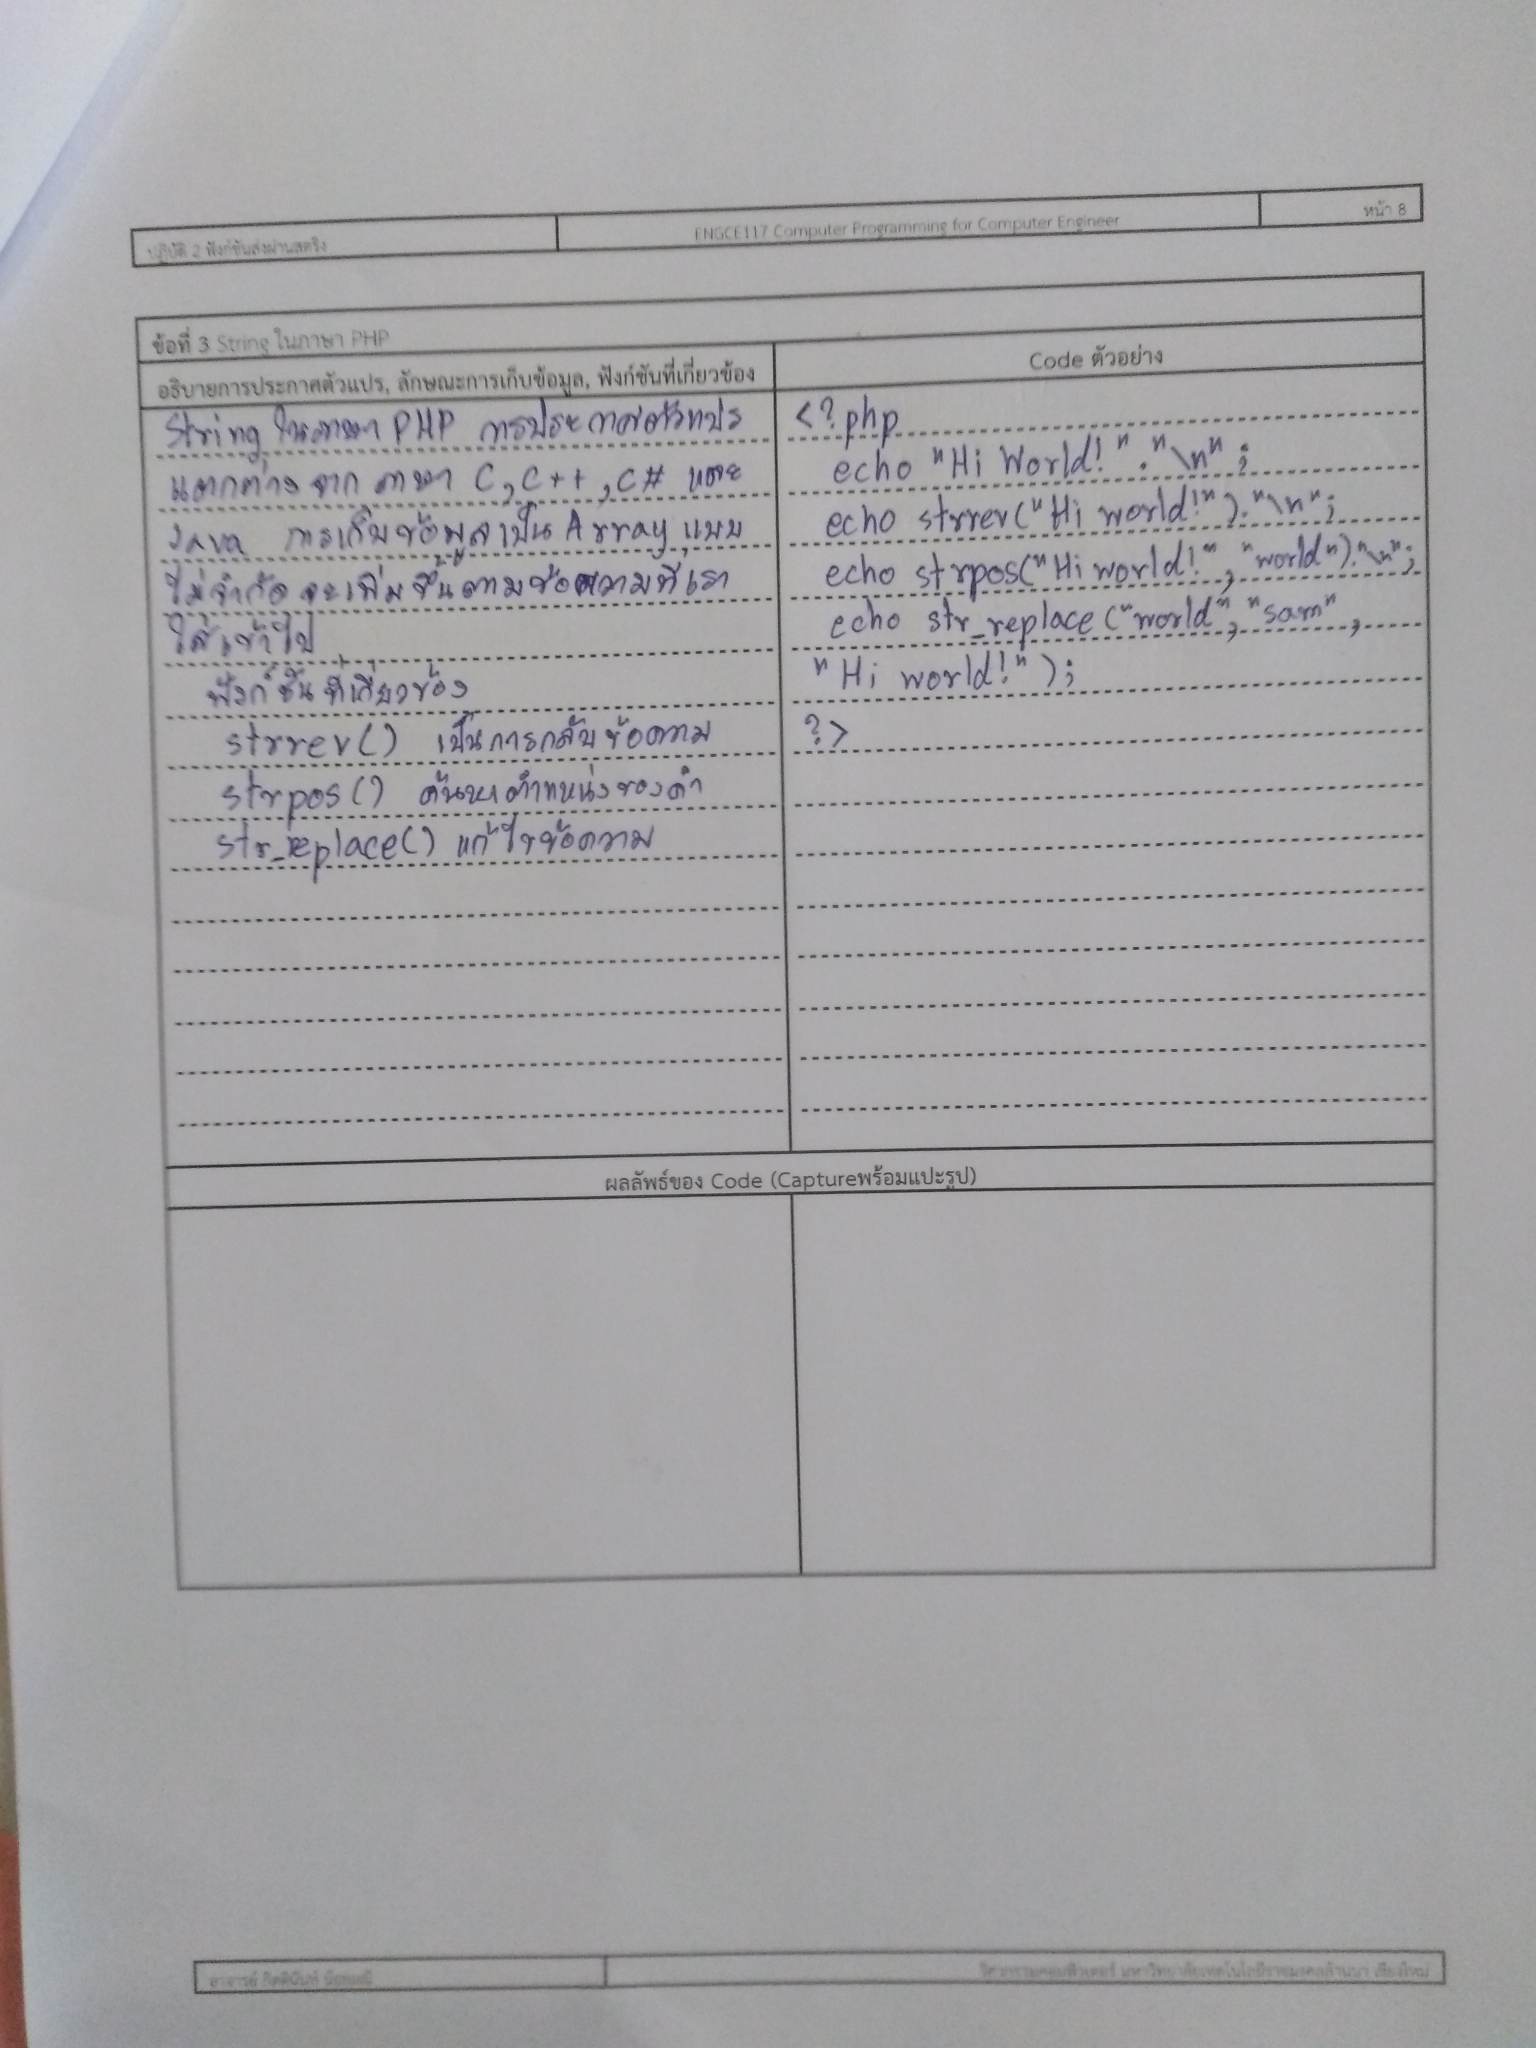 ปฏิบัติ 2 ฟังก์ชันส่งผ่านสตริง
ENGCE117 Computer Programming for Computer Engineer
หน้า 8
ข้อที่ 3 String ในภาษา PHP
อธิบายการประกาศตัวแปร, ลักษณะการเก็บข้อมูล, ฟังก์ชันที่เกี่ยวข้อง
String ในภาษา PHP การประกาศตัวแปร
แตกต่างจาก ภาษา C, C++, C# และ
Java การเก็บข้อมูลเป็น Array แบบ
ไม่จำกัด จะเพิ่มขึ้นตามข้อความที่เรา
ใส่เข้าไป
ฟังก์ชั่นที่เกี่ยวข้อง
strrev() เป็นการกลับข้อความ
strpos() ค้นหาตำแหน่งของคำ
str_replace() แก้ไขข้อความ
Code ตัวอย่าง
<?php
echo "Hi World!"."\n";
echo strrev("Hi world!")."\n";
echo strpos("Hi world!", "world")."\n";
echo str_replace("world", "sam",
"Hi world!");
?>
ผลลัพธ์ของ Code (Captureพร้อมแปะรูป)
อาจารย์
วิศวกรรมคอมพิวเตอร์ มหาวิทยาลัยเทคโนโลยีราชมงคลล้านนา เชียงใหม่